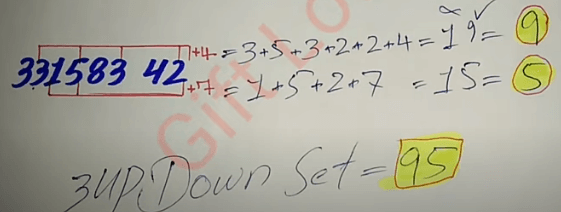 +4 = 3+5+3+2+2+4 = 19 = 9
331583 42
+7 = 1+5+2+7 = 15 = 5
3up, Down Set = 95
Gift Lo